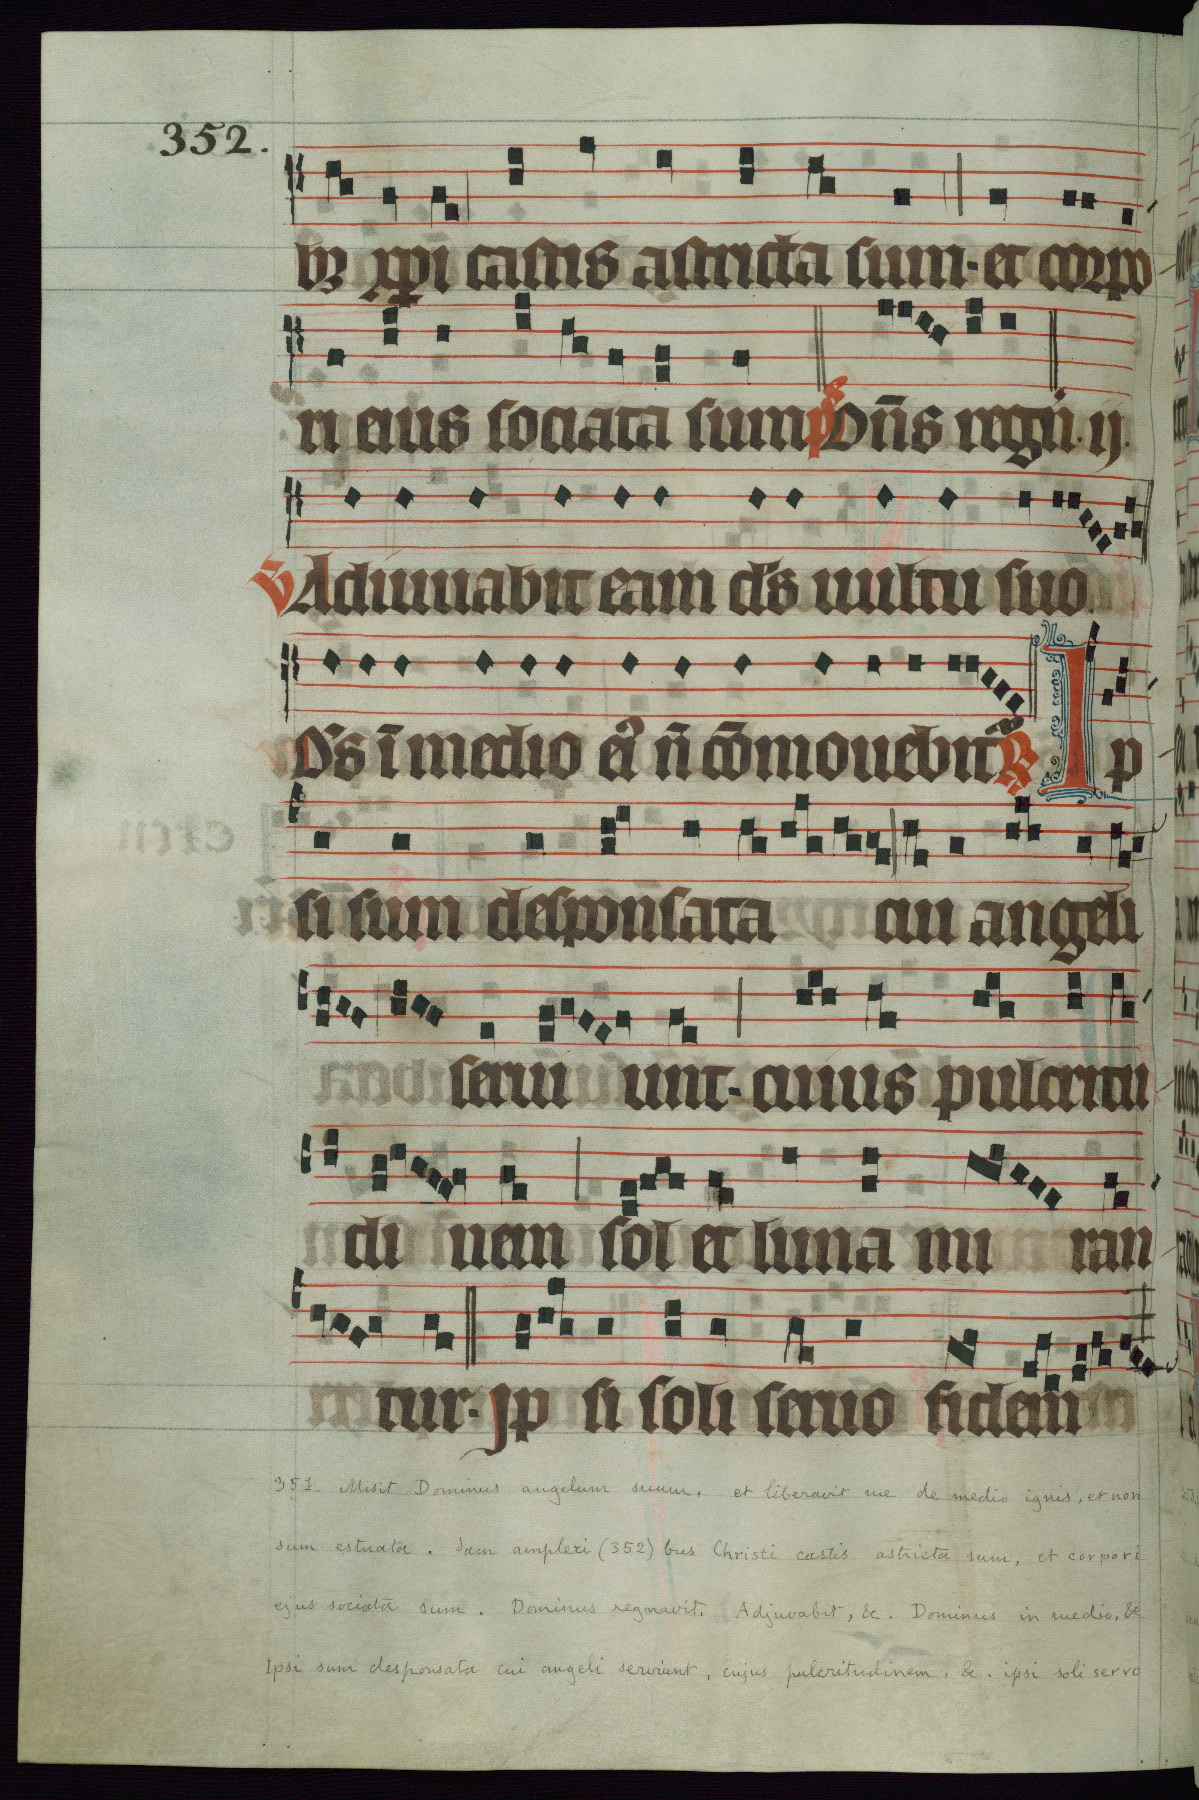 352.
bꝫ xp̄i castis astricta sum· et corpo
ri eius sociata sum p̄s Dn̄s regn̄. ij.
V Adiuuabit eam ds̄ uultu suo.
Ds̄ ī medio ei᾽ n̄ cōmouebit᾽ R I p
si sum desponsata cui angeli
seruiunt· cuius pulcritu
dinem sol et luna miran
tur· Ip si soli seruo fidem
351. Misit Dominus angelum suum, et liberavit me de medio ignis, et non
sum estuata. Jam amplexi (352) bus Christi castis astricta sum, et corpori
ejus sociata sum. Dominus regnavit. Adjuvabit, &c. Dominus in medio, &c
Ipsi sum desponsata cui angeli serviunt, cujus pulcritudinem, &c. ipsi soli servo